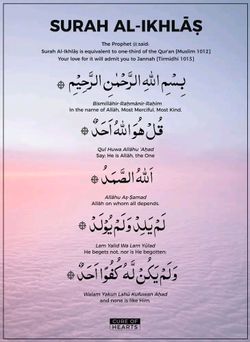 SURAH AL-IKHLĀṢ
The Prophet ﷺ said:
Surah Al-Ikhlāṣ is equivalent to one-third of the Qur'an [Muslim 1012]
Your love for it will admit you to Jannah [Tirmidhi 1015]
بِسْمِ اللهِ الرَّحْمٰنِ الرَّحِيْمِ
Bismillāhir-Raḥmānir-Raḥīm
In the name of Allāh, Most Merciful, Most Kind.
قُلْ هُوَ اللهُ اَحَدٌ
Qul Huwa Allāhu 'Aḥad
Say: He is Allāh, the One
اَللهُ الصَّمَدُ
Allāhu Aṣ-Ṣamad
Allāh on whom all depends.
لَمْ يَلِدْ وَلَمْ يُوْلَدْ
Lam Yalid Wa Lam Yūlad
He begets not, nor is He begotten:
وَلَمْ يَكُنْ لَّهُ كُفُوًا اَحَدٌ
Walam Yakun Lahū Kufuwan Aḥad
and none is like Him
CURE OF
HEARTS